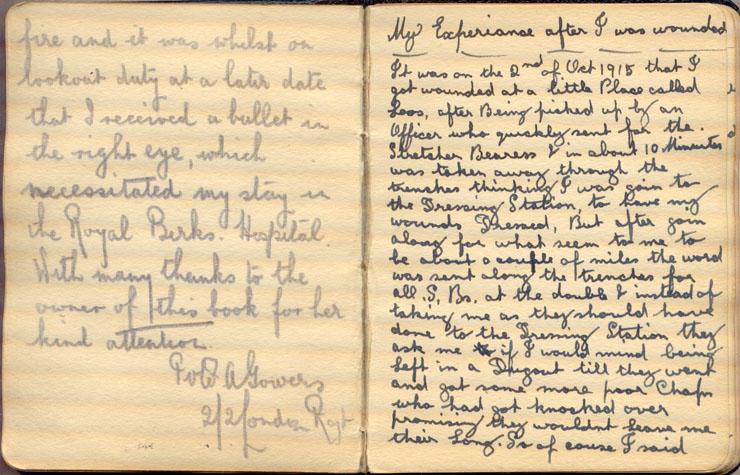 fire and it was whilst on
lookout duty at a later date
that I received a bullet in
the right eye, which
necessitated my stay in
the Royal Berks. Hospital.
With many thanks to the
owner of this book for her
kind attention.
A Gowers
2/2 London Regt
My Experiance after I was wounded
It was on the 2nd of Oct 1915 that I
got wounded at a little Place called
Loos, after Being picked up by an
Officer who quickly sent for the.
Stretcher Bearess & in about 10 Minutes
was taken away through the
trenches thinking I was goin to
the Dressing Station, to have my
wounds Dressed, But after goin
along for what seem to me to
be about a couple of miles the word
was sent along the trenches for
all, S, Bs, at the double & instead of
taking me as they should have
done to the Dressing Station they
ask me if I would mind being
left in a Dugout till they went
and got some more poor Chaps
who had got knocked over
promising they wouldnt leave me
their Long. So of couse I said